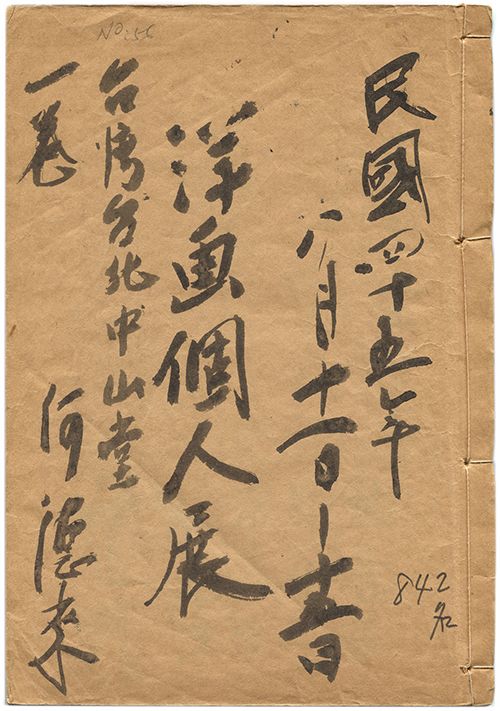 NO.56
民國四十五年
八月十一日—十五日
洋画個人展
台湾台北中山堂
一卷
何德來
842名